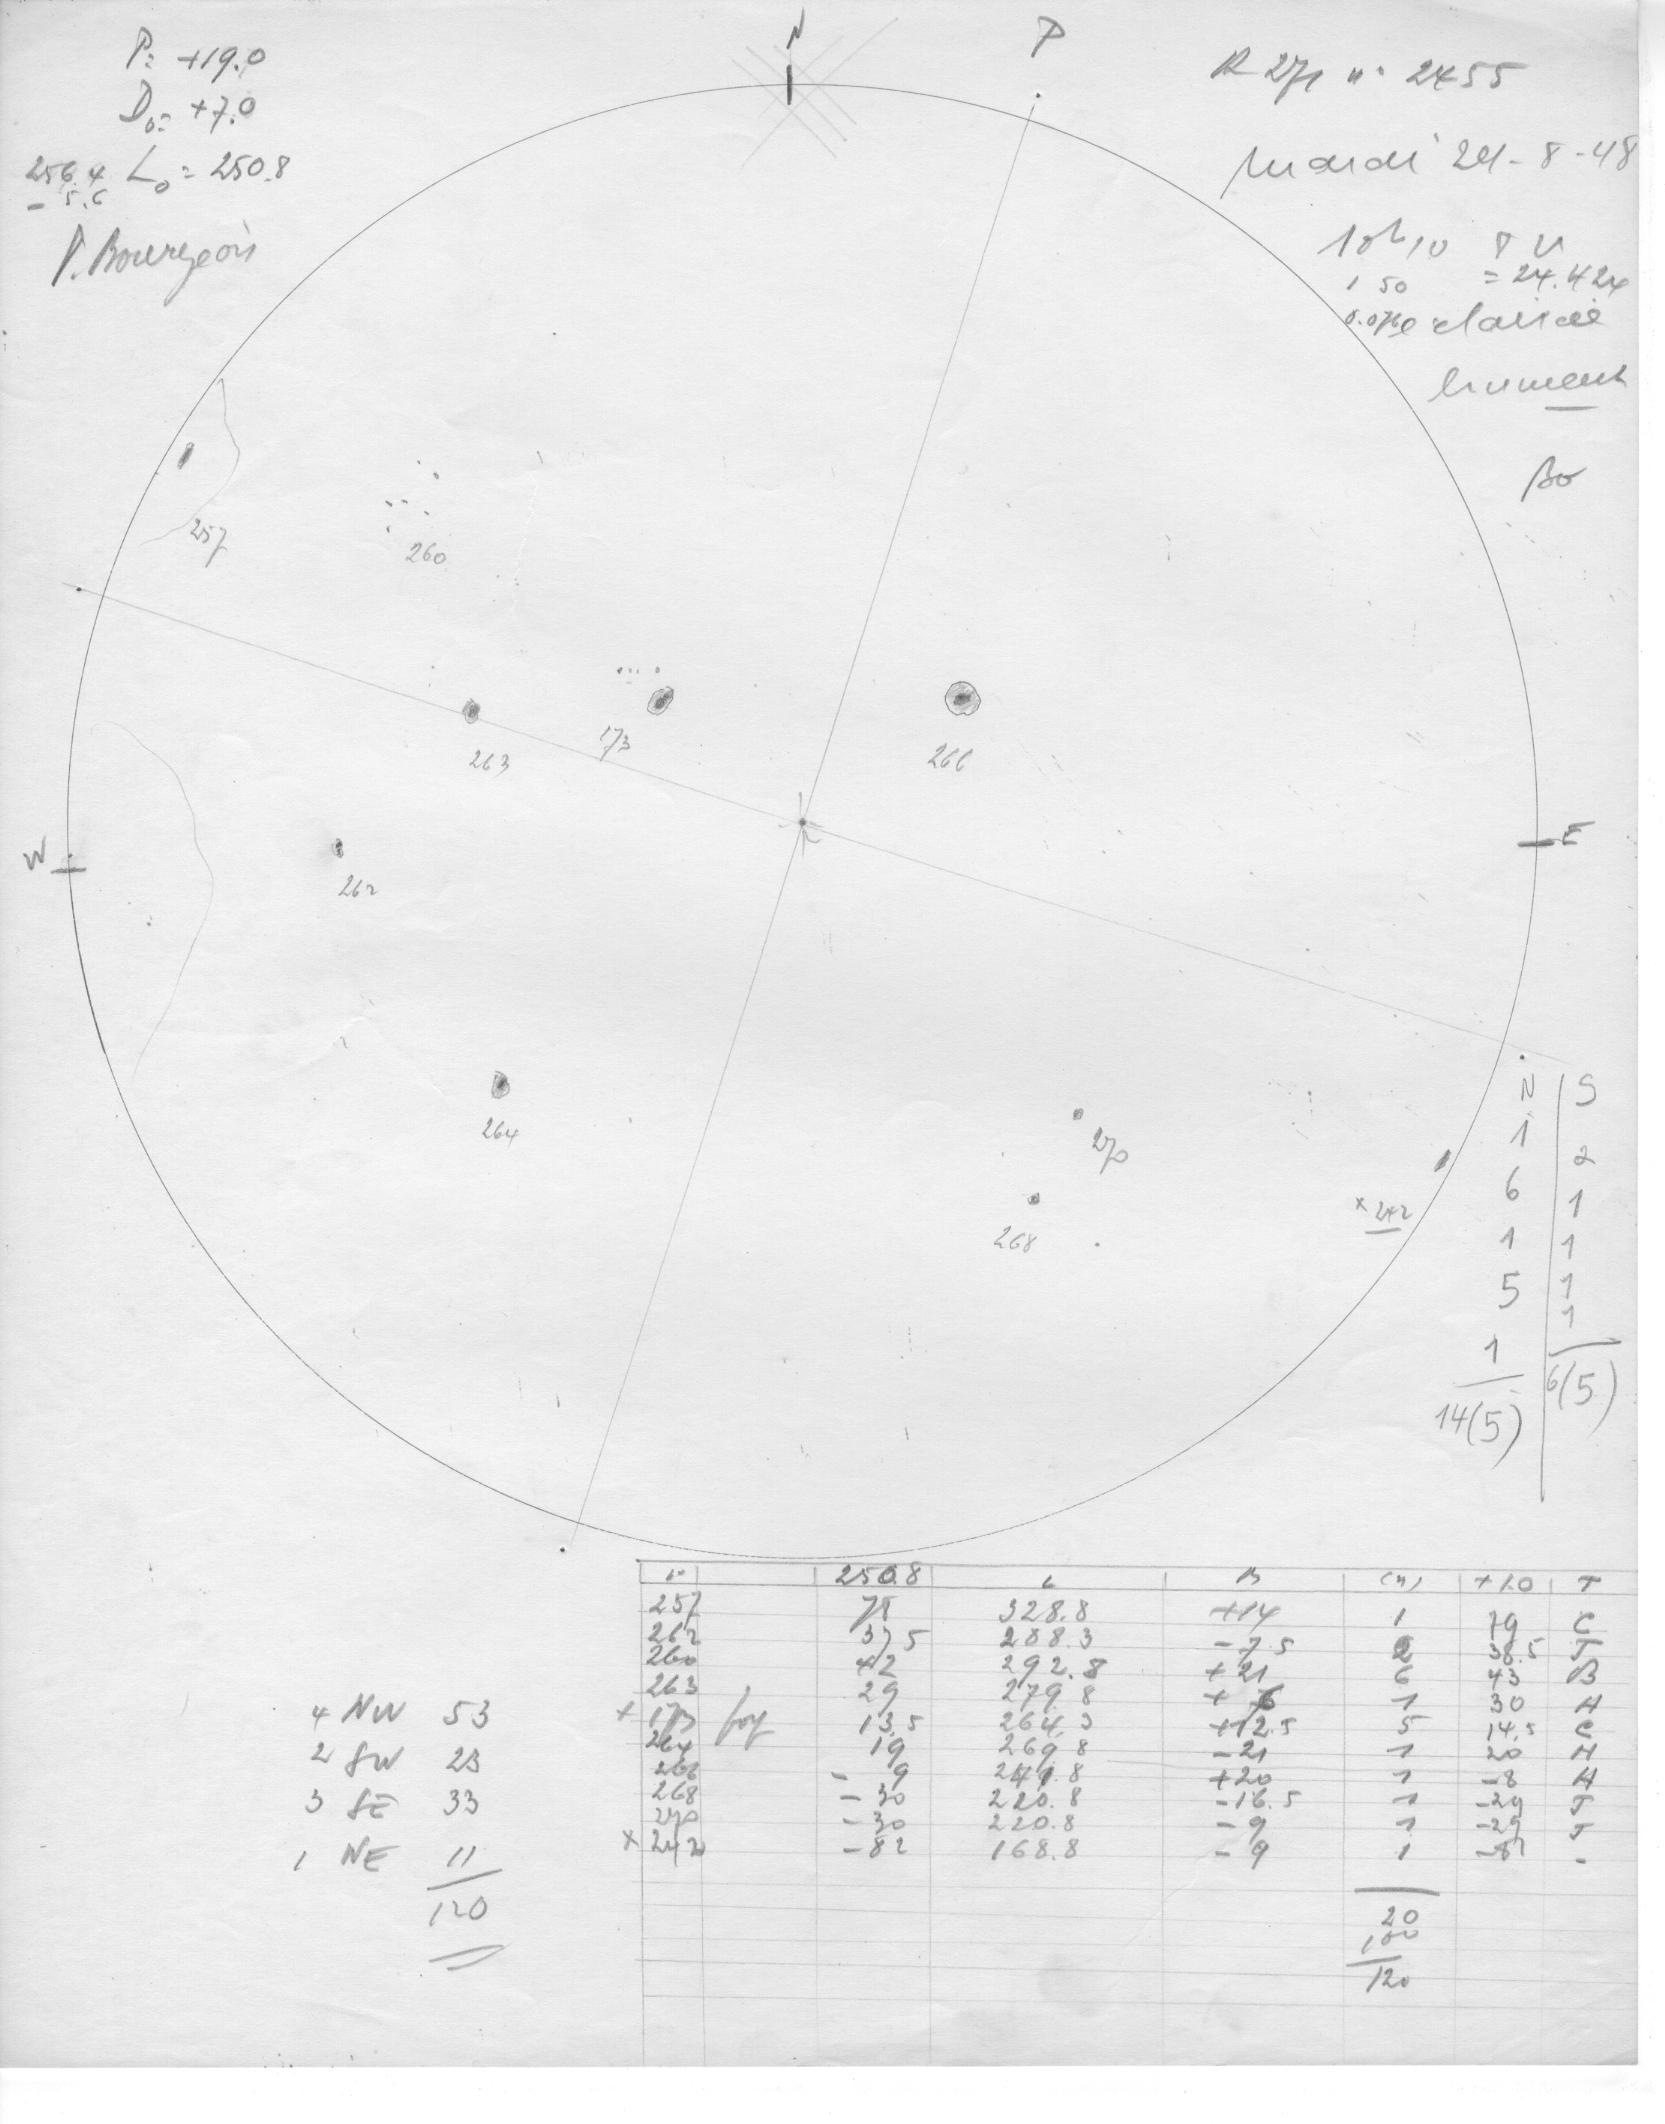 P= +19.0
D₀= +7.0
256.4 L₀ = 250.8
- 5.6
P. Bourgeois
N
P
n° 2455
mardi 24-8-48
10h10 TU
1 50 = 24.424
0.076
Bo
257
260
263
173
266
W
E
262
264
270
268
x 242
N | S
1 2
6 1
1 1
5 1
1 1
14(5) 6(5)
n° 250.8 L B (n) +1.0 T
257 78 328.8 +14 1 79 C
262 37.5 288.3 -7.5 2 38.5 J
260 42 292.8 +21 6 43 B
263 29 279.8 + 6 1 30 H
+ 173 13.5 264.3 +12.5 5 14.5 C
264 19 269.8 -21 1 20 H
266 - 9 241.8 +20 1 -8 H
268 -30 220.8 -16.5 1 -29 J
270 -30 220.8 -9 1 -29 J
x 242 -82 168.8 -9 1 -81 -
20
100
120
4 NW 53
2 SW 23
3 SE 33
1 NE 11
120